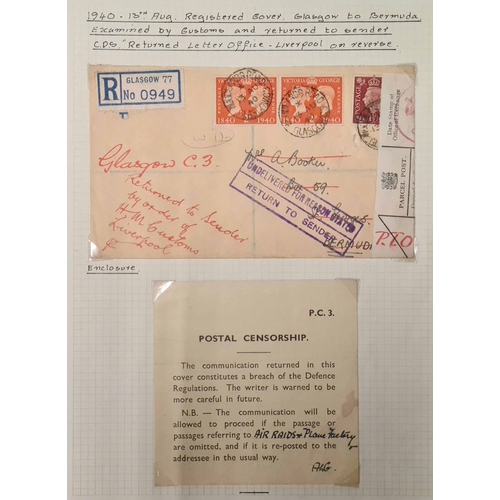 1940 - 13TH Aug. Registered Cover. Glasgow to Bermuda
Examined by Customs and returned to sender
C.D.S. "Returned Letter Office - Liverpool on reverse.
R
GLASGOW 77
No 0949
VICTORIA GEORGE
1840 1940
1840 1940
GLASGOW
Date Stamp of
Office of Delivery
PARCEL POST.
Glasgow C.3.
Returned to Sender
by order of
H.M. Customs
Liverpool
A Booker
Box 59
BERMUDA
UNDELIVERED FOR REASON STATED
RETURN TO SENDER
P.T.O
Enclosure
P.C. 3.
POSTAL CENSORSHIP.
The communication returned in this
cover constitutes a breach of the Defence
Regulations. The writer is warned to be
more careful in future.
N.B. — The communication will be
allowed to proceed if the passage or
passages referring to AIR RAIDS & Plane Factory
are omitted, and if it is re-posted to the
addressee in the usual way.